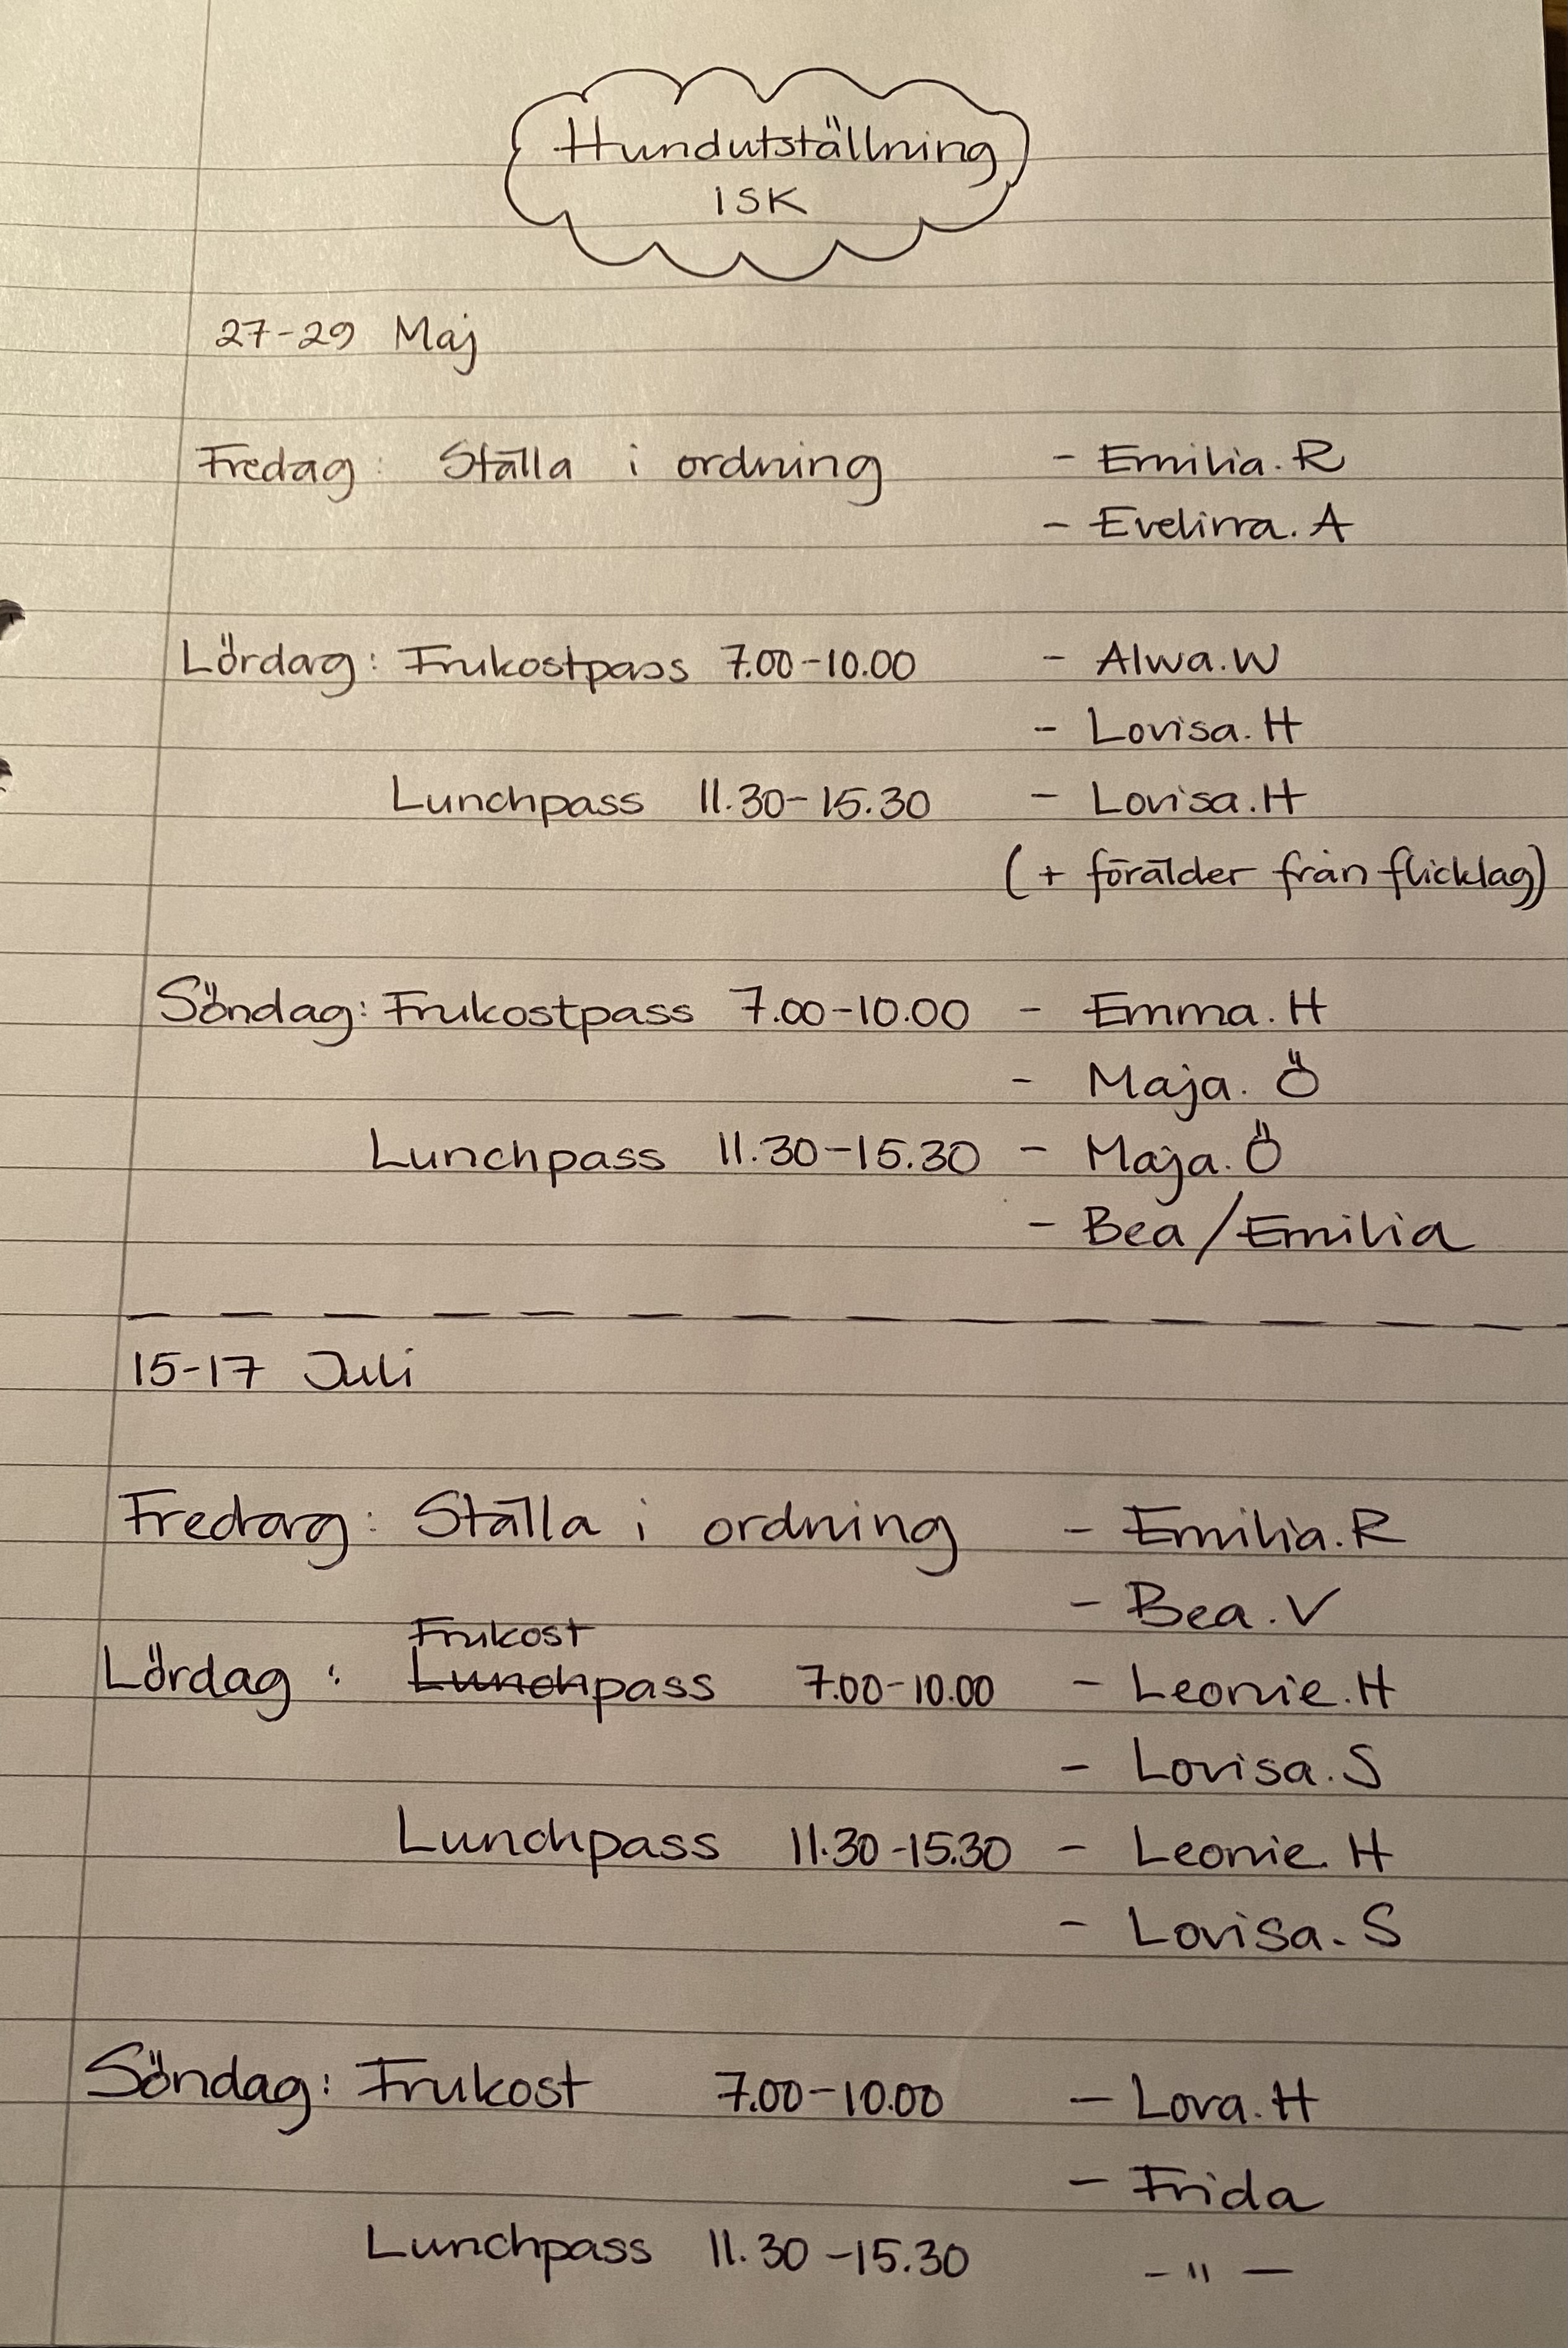 Hundutställning
ISK
27-29 Maj
Fredag: Ställa i ordning - Emilia.R
- Evelina.A
Lördag: Frukostpass 7.00-10.00 - Alwa.W
- Lovisa.H
Lunchpass 11.30-15.30 - Lovisa.H
(+ förälder från flicklag)
Söndag: Frukostpass 7.00-10.00 - Emma.H
- Maja.Ö
Lunchpass 11.30-15.30 - Maja.Ö
- Bea/Emilia
15-17 Juli
Fredag: Ställa i ordning - Emilia.R
- Bea.V
Frukost
Lördag: Lunchpass 7.00-10.00 - Leonie.H
- Lovisa.S
Lunchpass 11.30-15.30 - Leonie.H
- Lovisa.S
Söndag: Frukost 7.00-10.00 - Lova.H
- Frida
Lunchpass 11.30-15.30 - " -